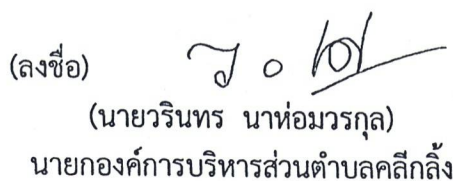 (ลงชื่อ)
(นายวรินทร นาห่อมวรกุล)
นายกองค์การบริหารส่วนตำบลคลีกลิ้ง